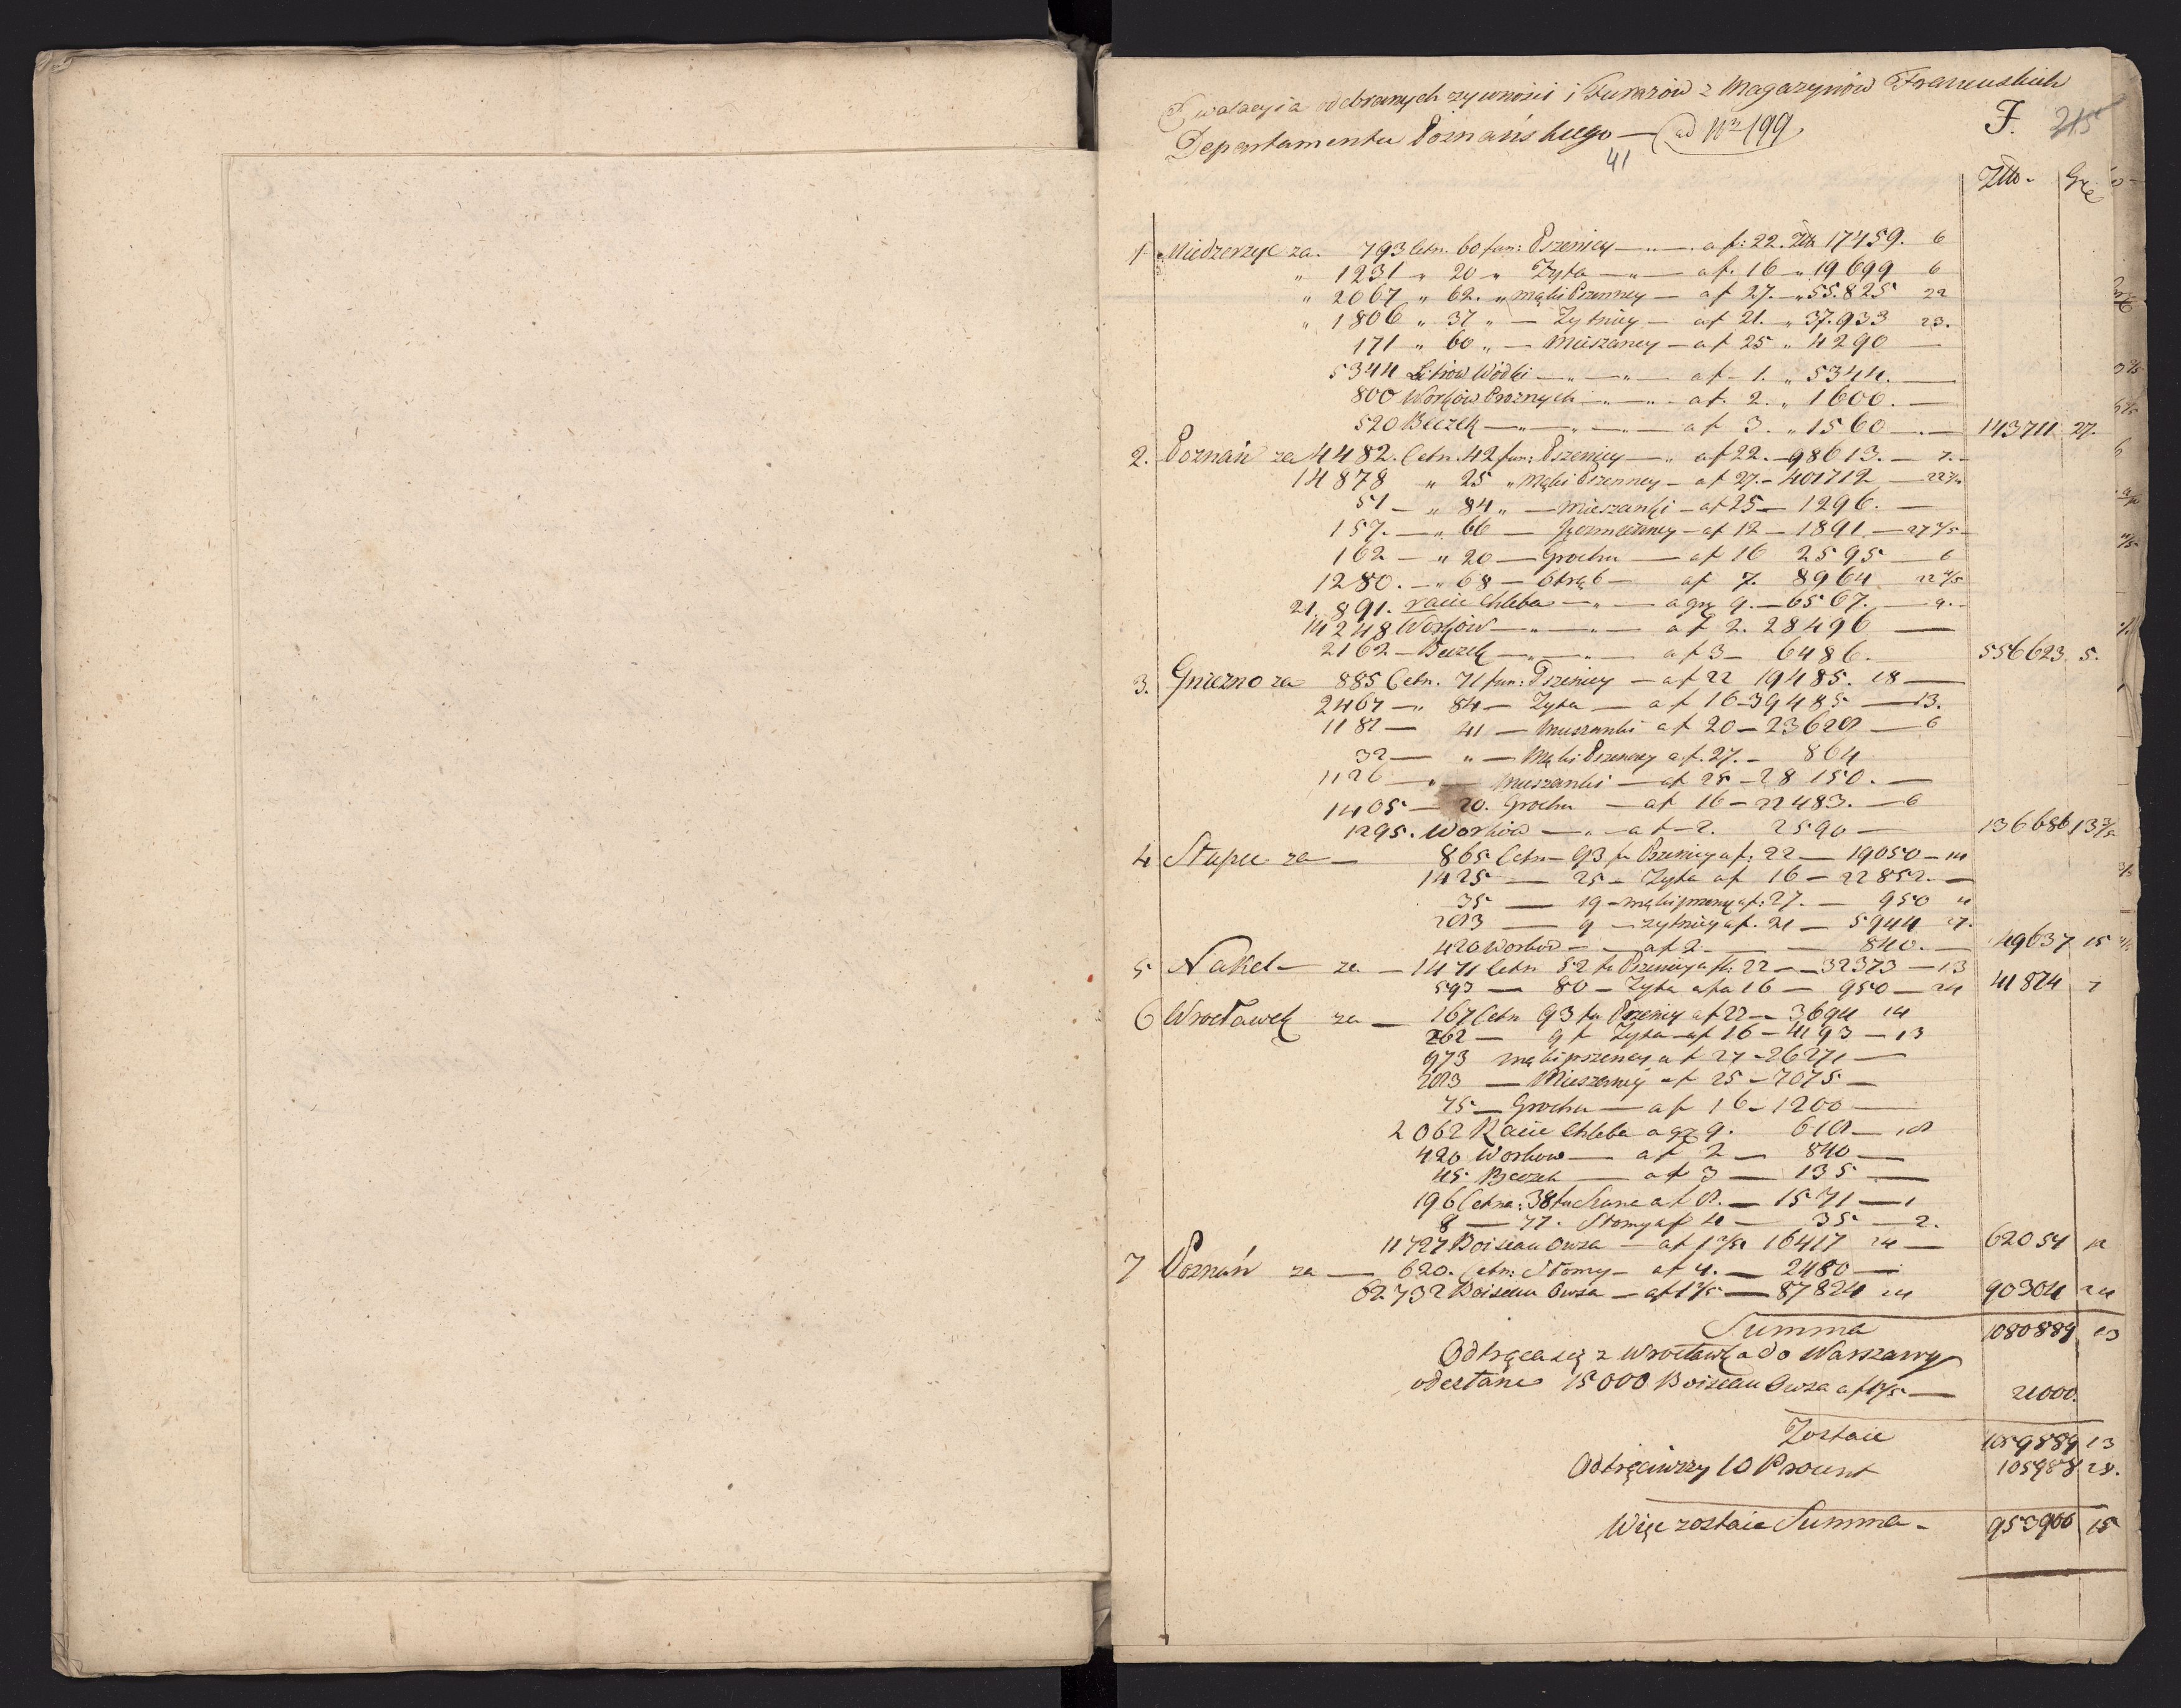 Ewalacyia odebranych zywnosci i Furazów z Magazynów Francuskich
Departamentu Poznańskiego — ad Nr 199
F. 215
41
Złto. Gr
1. Miedzerzyc za. 793 Cetn. 60 fun: Pszenicy — " — a f: 22. Zł 17459. 6
" 1231 " 20 " Zyta — " — a f. 16 " 19699 6
" 2067 " 62. " mąki Pszenney — a f 27. — " 55.825 22
" 1806 " 37 " — Zytniey — a f 21. " 37.933 23.
171 " 60 " — Mieszaney — a f 25 " 4290 —
5344 Litrow Wódki — " — " — a f — 1. " 5344. —
800 Worków Proznych — " — " — a f. 2. " 1600. —
520 Beczek — " — " — " — a f 3. " 1560 — . — 143711 27.
2. Poznań za 4482. Cetn. 42 fun: Pszenicy — " a f 22. — 98613. — 7. —
14878 " 25 " Mąki Pszenney — a f 27. — 401712 — 22 1/2
51 — " 84 " — mieszanki — a f 25 — 1296. —
157. — " 66 — Jęczmienney — a f 12 — 1891 — 27 3/5 —
162 — " 20 — Grochu — a f 16 2595 — 6
1280. — " 68 — Otrąb — a f 7. 8964 22 4/5
21.891. racie Chleba — " — a gr 9. — 6567. — 9. —
14248 Worków — " — " — a f 2. 28496 —
2162 — Beczek — " — " — a f 3 — 6486. — 556623. 5.
3. Gniezno za 885 Cetn. 71 fun: Pszenicy — a f 22 19485. 18 —
2467 — " 84 — Zyta — a f 16 — 39485 — 13.
1181 — 41 — Mieszanki a f 20 — 23628 — 6
32 — " — Mąki Pszenney a f. 27. — 864
1126 — " — Mieszanki — a f 25 — 28150. —
1405 — 20. Grochu — a f 16 — 22483. — 6
1295. Worków — " — a f — 2. 2590 — 136686 13 2/5
4 Stupce za — 865 Cetn — 93 fu Pszenicy a f: 22 — 19050 — 14
1425 — 25 — Zyta a f 16 — 22852. —
35 — 19 — mąki pszeny a f: 27. — 950 4
283 — 9 — zytniey a f. 21 — 5944 27.
420 Workow — — a f 2 — — 840. — 49637 15
5 Nakel — za — 1471 Cetn 52 fu Pszenicy a fl: 22 — — 32373 — 13
593 — 80 — Zyta a f a 16 — 950 — 24 41874 7
6 Wrocławek za — 167 Cetn 93 fu Pszenicy a f 22 — 3694 14
262 — 9 f Zyta — a f 16 — 4193 — 13
973 mąki pszeney a f 27 — 26271 —
283 — Mieszaney a f 25 — 7075 —
75 — Grochu — a f 16 — 1200 —
2062 Racie Chleba a gr 9. 618 — 18
420 Workow — a f 2 — 840 —
45 Beczek — a f 3 — 135 —
196 Cetna: 38 fu Siana a f 8. — 1571 — 1
8 — 77. Słomy a f 4 — 35 — 2.
11727 Boiseau Owsa — a f 1 2/5 16417 24 — 62054 12
7 Poznań za — 620. Cetn: Słomy — a f 4. — 2480 —
62.732 Boiseau Owsa — a f 1 2/5 — 87824 24 90304 24
Summa 1080889 13
Odtrąca się z Wrocławka do Warszawy
odesłane 15000 Boiseau Owsa a f 1 2/5 — 21000.
Zostaie 1059889 13
Odtrąciwszy 10 Procent 105988 28.
Więc zostaie Summa — 953900 15